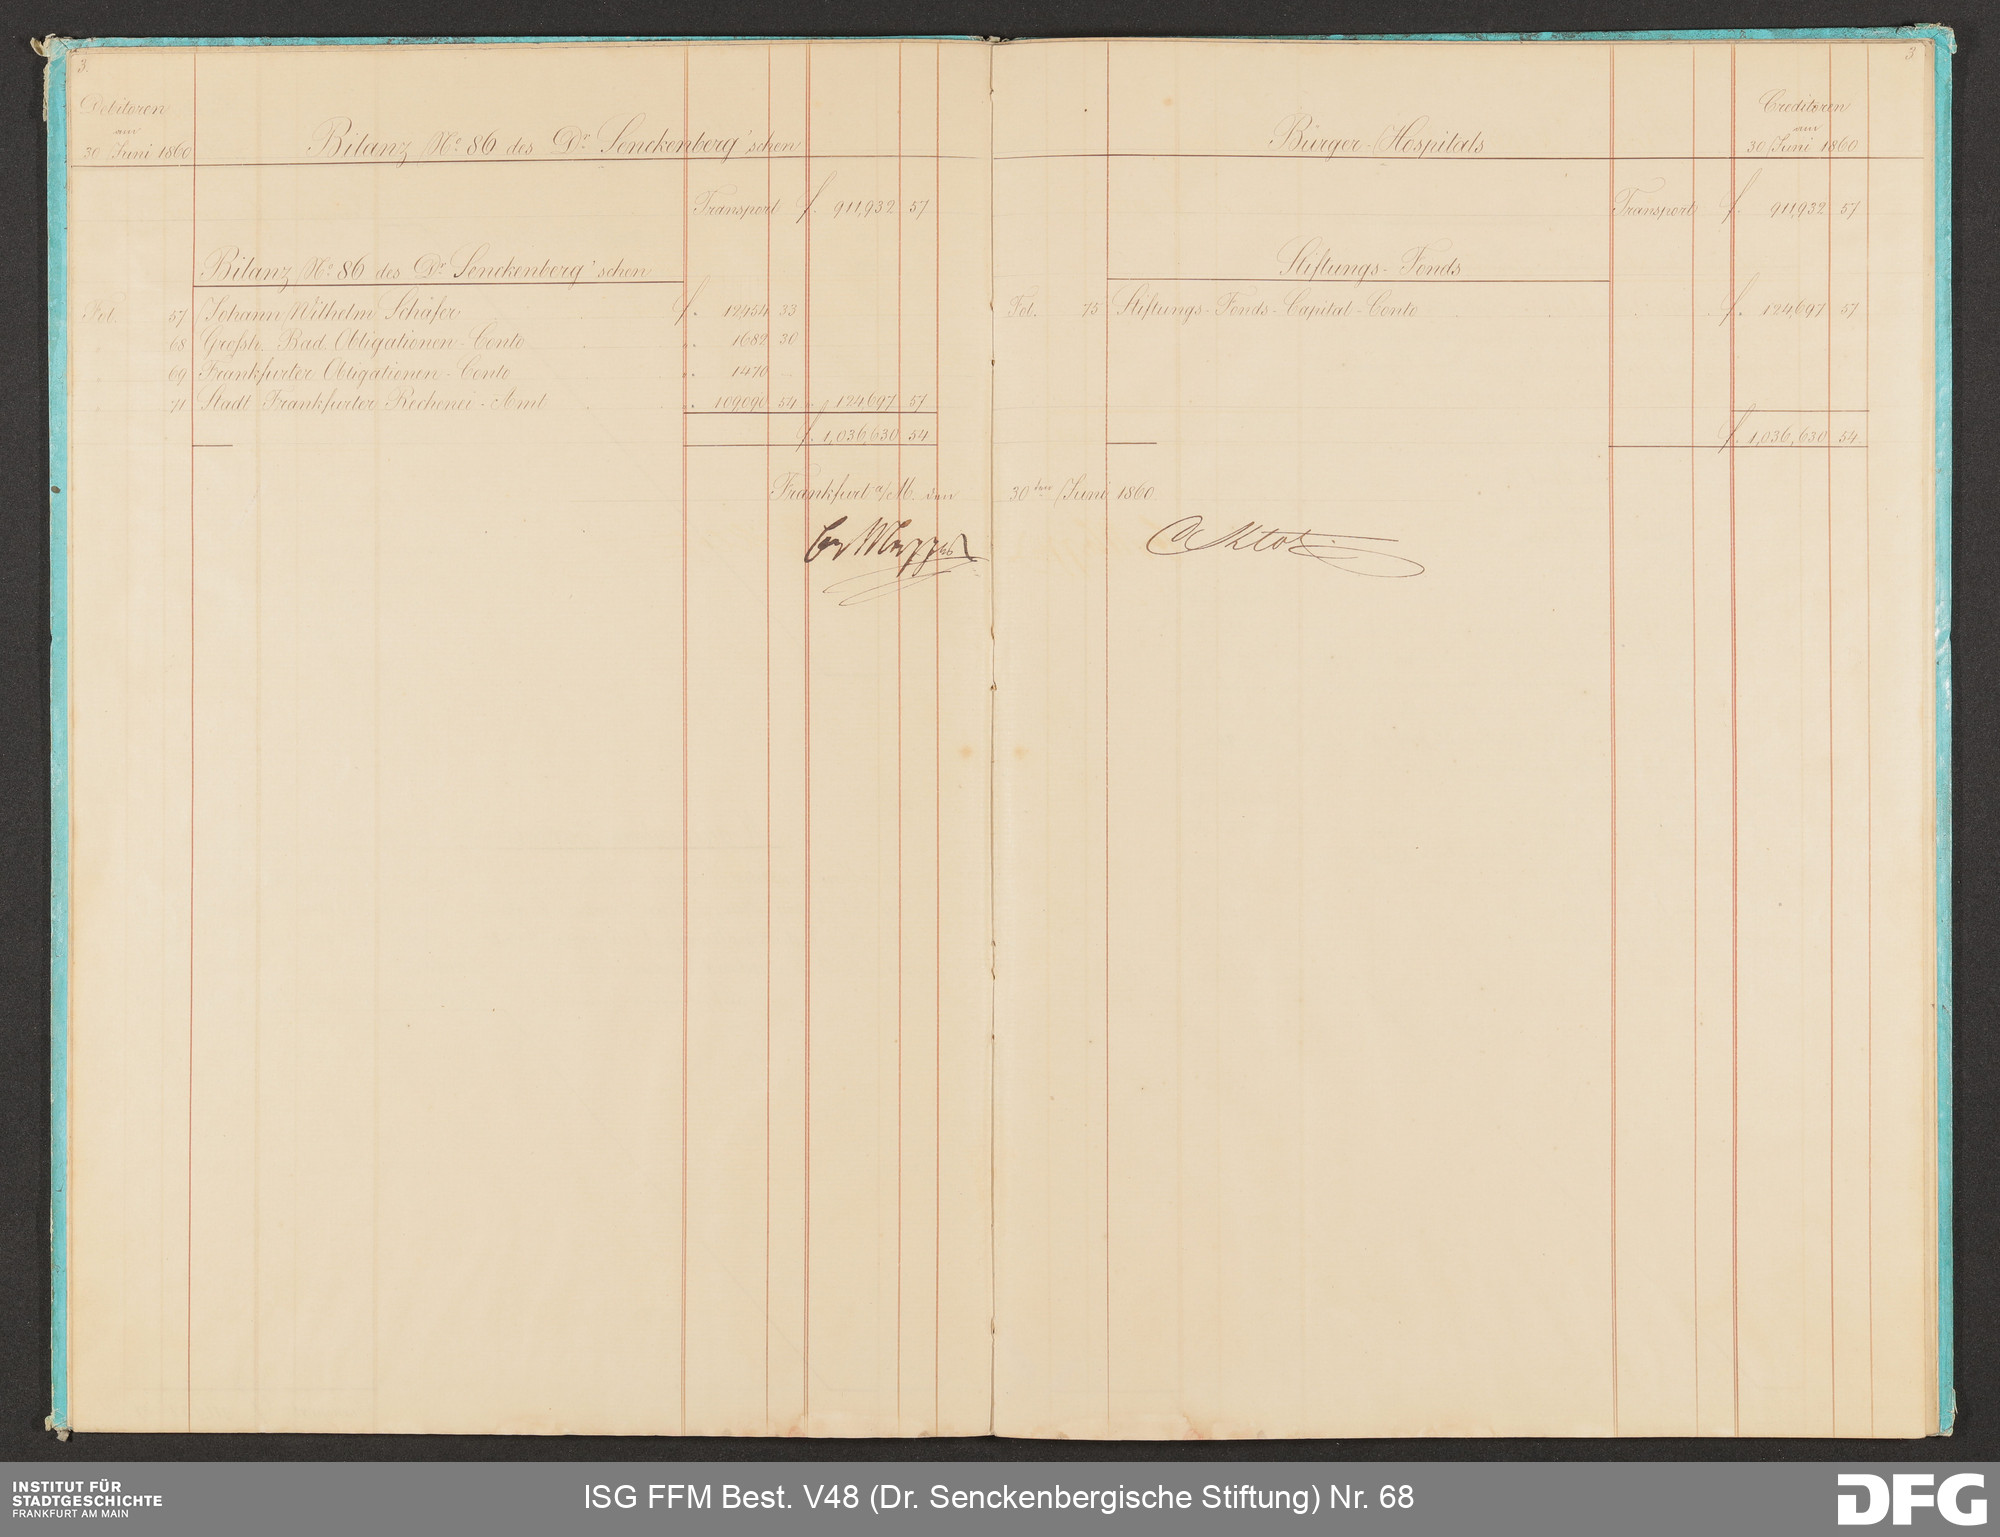 3.
Debitoren
am
30 Juni 1860
Bilanz No. 86 des Dr. Senckenberg'schen
Transport f. 911,932 57
Bilanz No. 86 des Dr. Senckenberg'schen
Fol. 57 Johann Wilhelm Schäfer f. 12454 33
68 Grossh. Bad. Obligationen-Conto „ 1682 30
69 Frankfurter Obligationen-Conto „ 1470 –
71 Stadt Frankfurter Rechenei-Amt „ 109090 54 „ 124697 57
f. 1,036,630 54
Frankfurt a/M. den
3
Creditoren
am
30 Juni 1860
Bürger-Hospitals
Transport f. 911,932 57
Stiftungs-Fonds
Fol. 75 Stiftungs-Fonds-Capital-Conto f. 124,697 57
f. 1,036,630 54
30ten Juni 1860
INSTITUT FÜR
STADTGESCHICHTE
FRANKFURT AM MAIN
ISG FFM Best. V48 (Dr. Senckenbergische Stiftung) Nr. 68
DFG